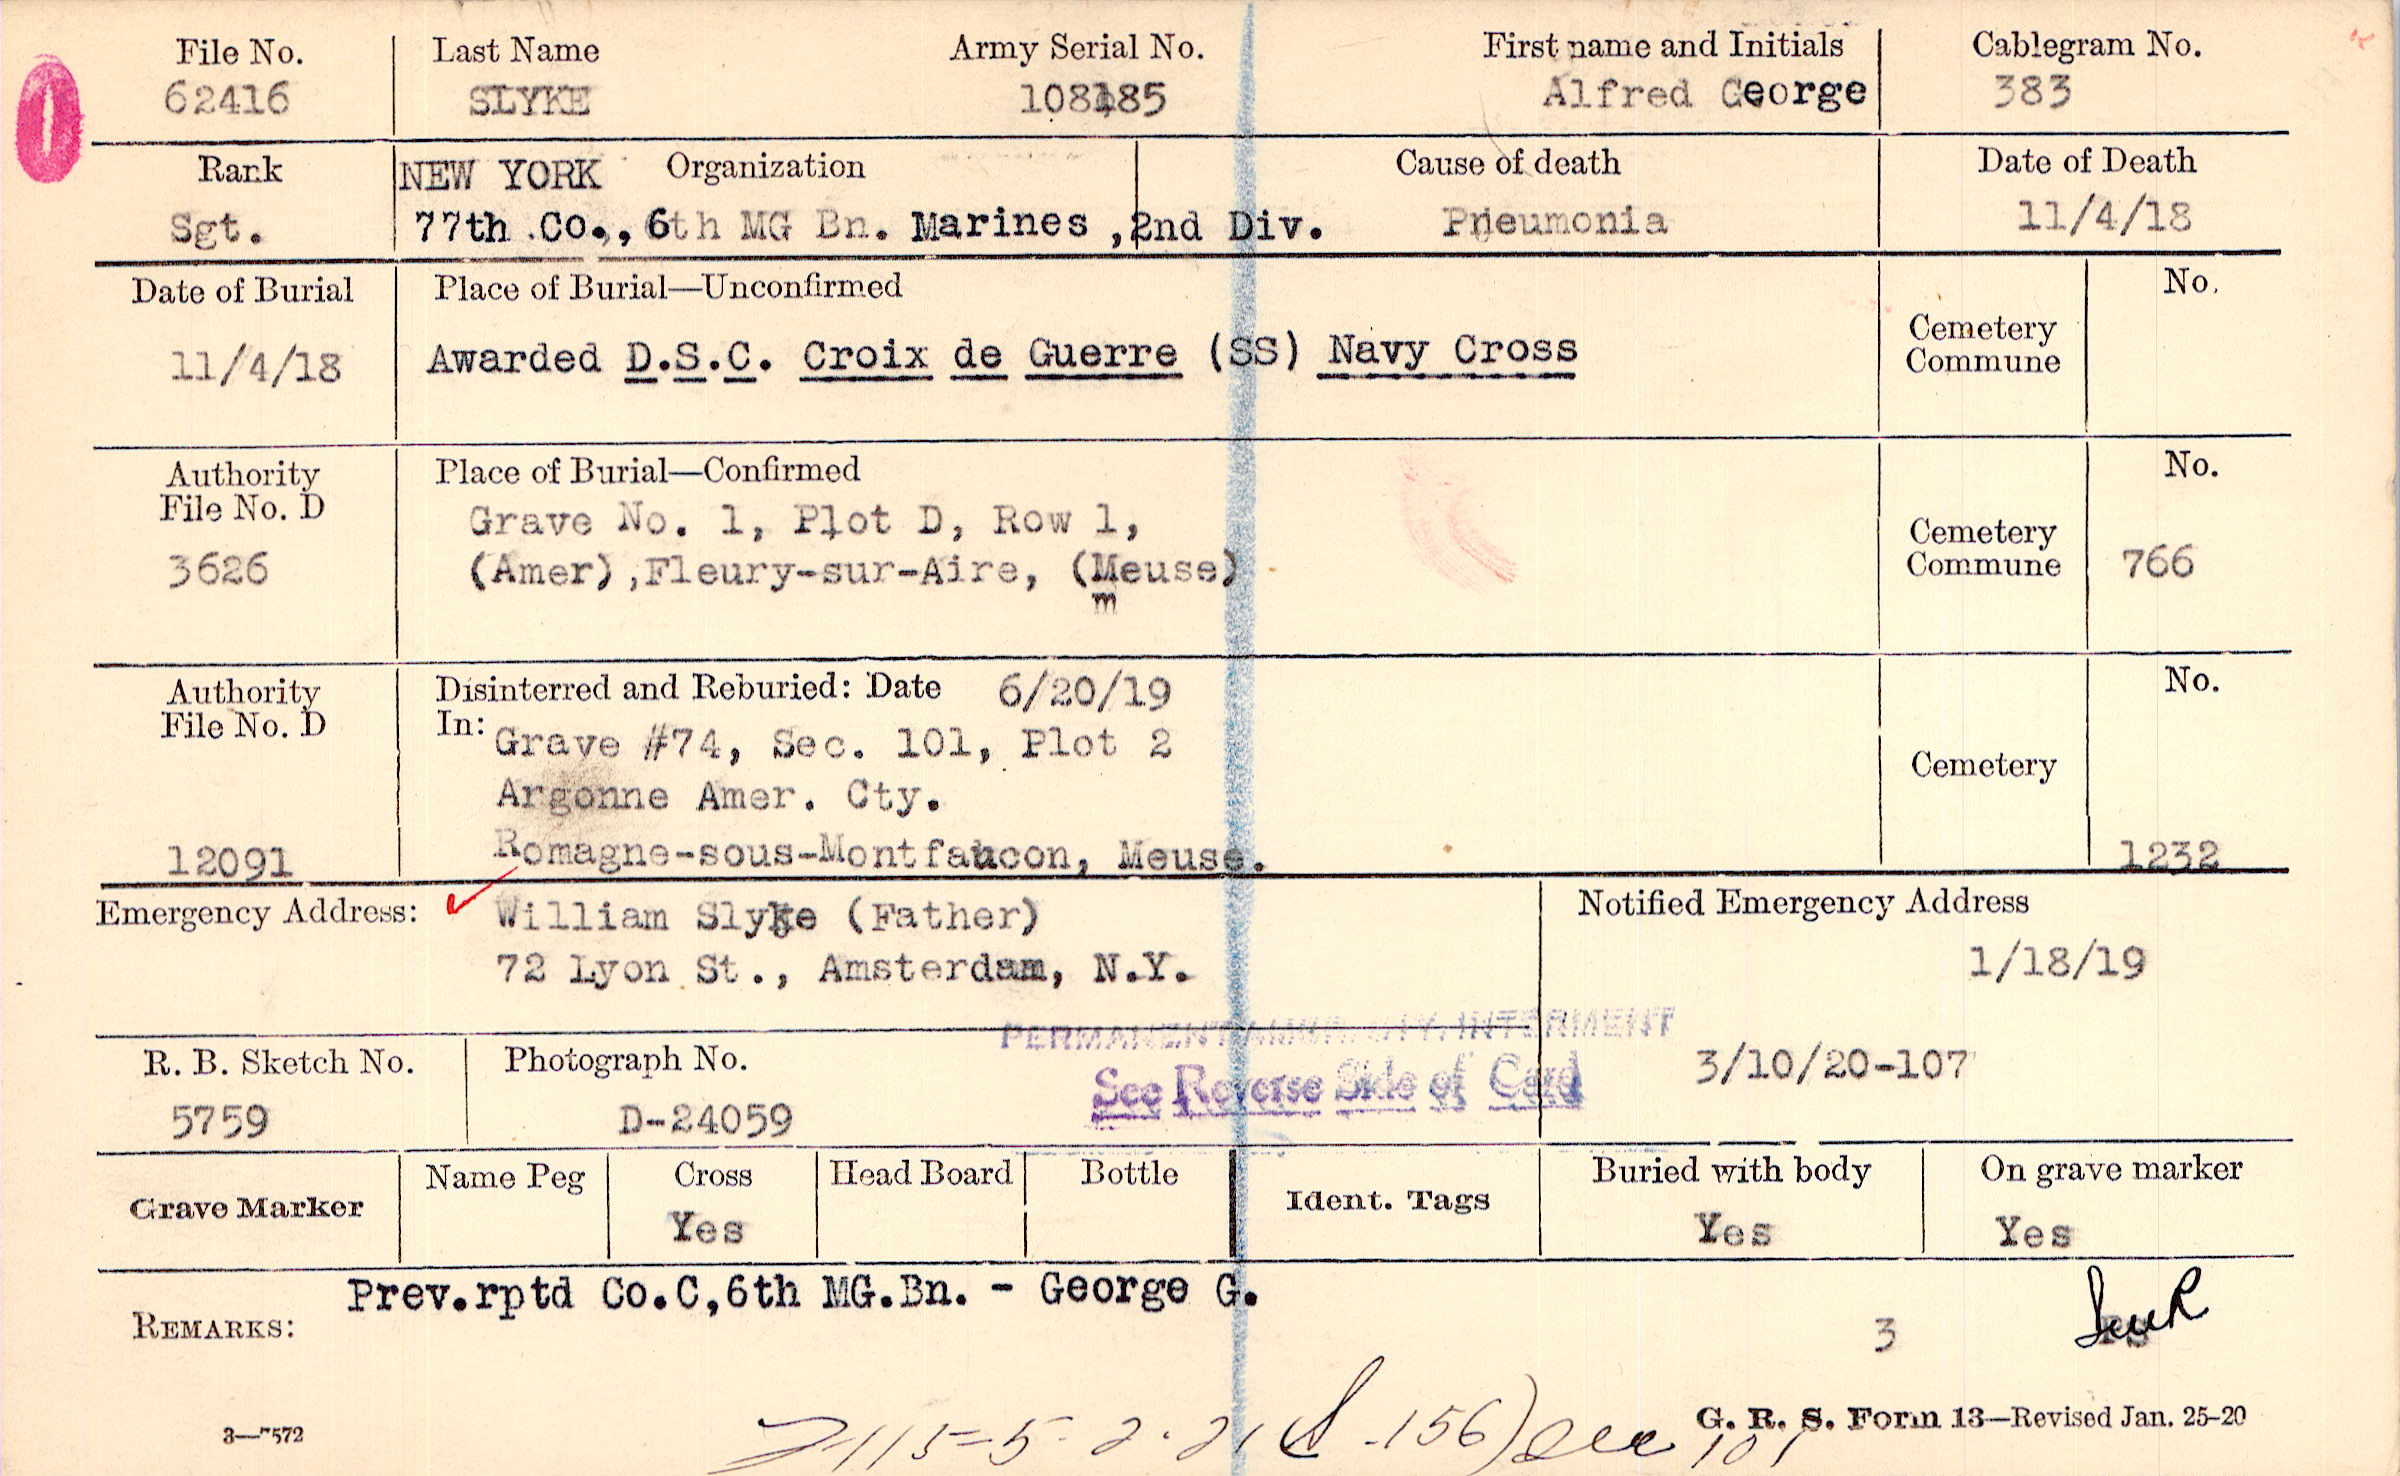 File No. Last Name Army Serial No. First name and Initials Cablegram No.
62416 SLYKE 108185 Alfred George 383
Rank NEW YORK Organization Cause of death Date of Death
Sgt. 77th Co., 6th MG Bn. Marines ,2nd Div. Pneumonia 11/4/18
Date of Burial Place of Burial—Unconfirmed No.
11/4/18 Awarded D.S.C. Croix de Guerre (SS) Navy Cross Cemetery
Commune
Authority Place of Burial—Confirmed No.
File No. D Grave No. 1, Plot D, Row 1,
3626 (Amer),Fleury-sur-Aire, (Meuse) Cemetery
m Commune 766
Authority Disinterred and Reburied: Date 6/20/19 No.
File No. D In: Grave #74, Sec. 101, Plot 2
Argonne Amer. Cty. Cemetery
12091 Romagne-sous-Montfaucon, Meuse. 1232
Emergency Address: William Slyke (Father) Notified Emergency Address
72 Lyon St., Amsterdam, N.Y. 1/18/19
PERMANENT INTERMENT
R. B. Sketch No. Photograph No. See Reverse Side of Card 3/10/20-107
5759 D-24059
Grave Marker Name Peg Cross Head Board Bottle Ident. Tags Buried with body On grave marker
Yes Yes Yes
Prev.rptd Co.C,6th MG.Bn. - George G.
REMARKS: 3
G. R. S. Form 13—Revised Jan. 25-20
3—7572